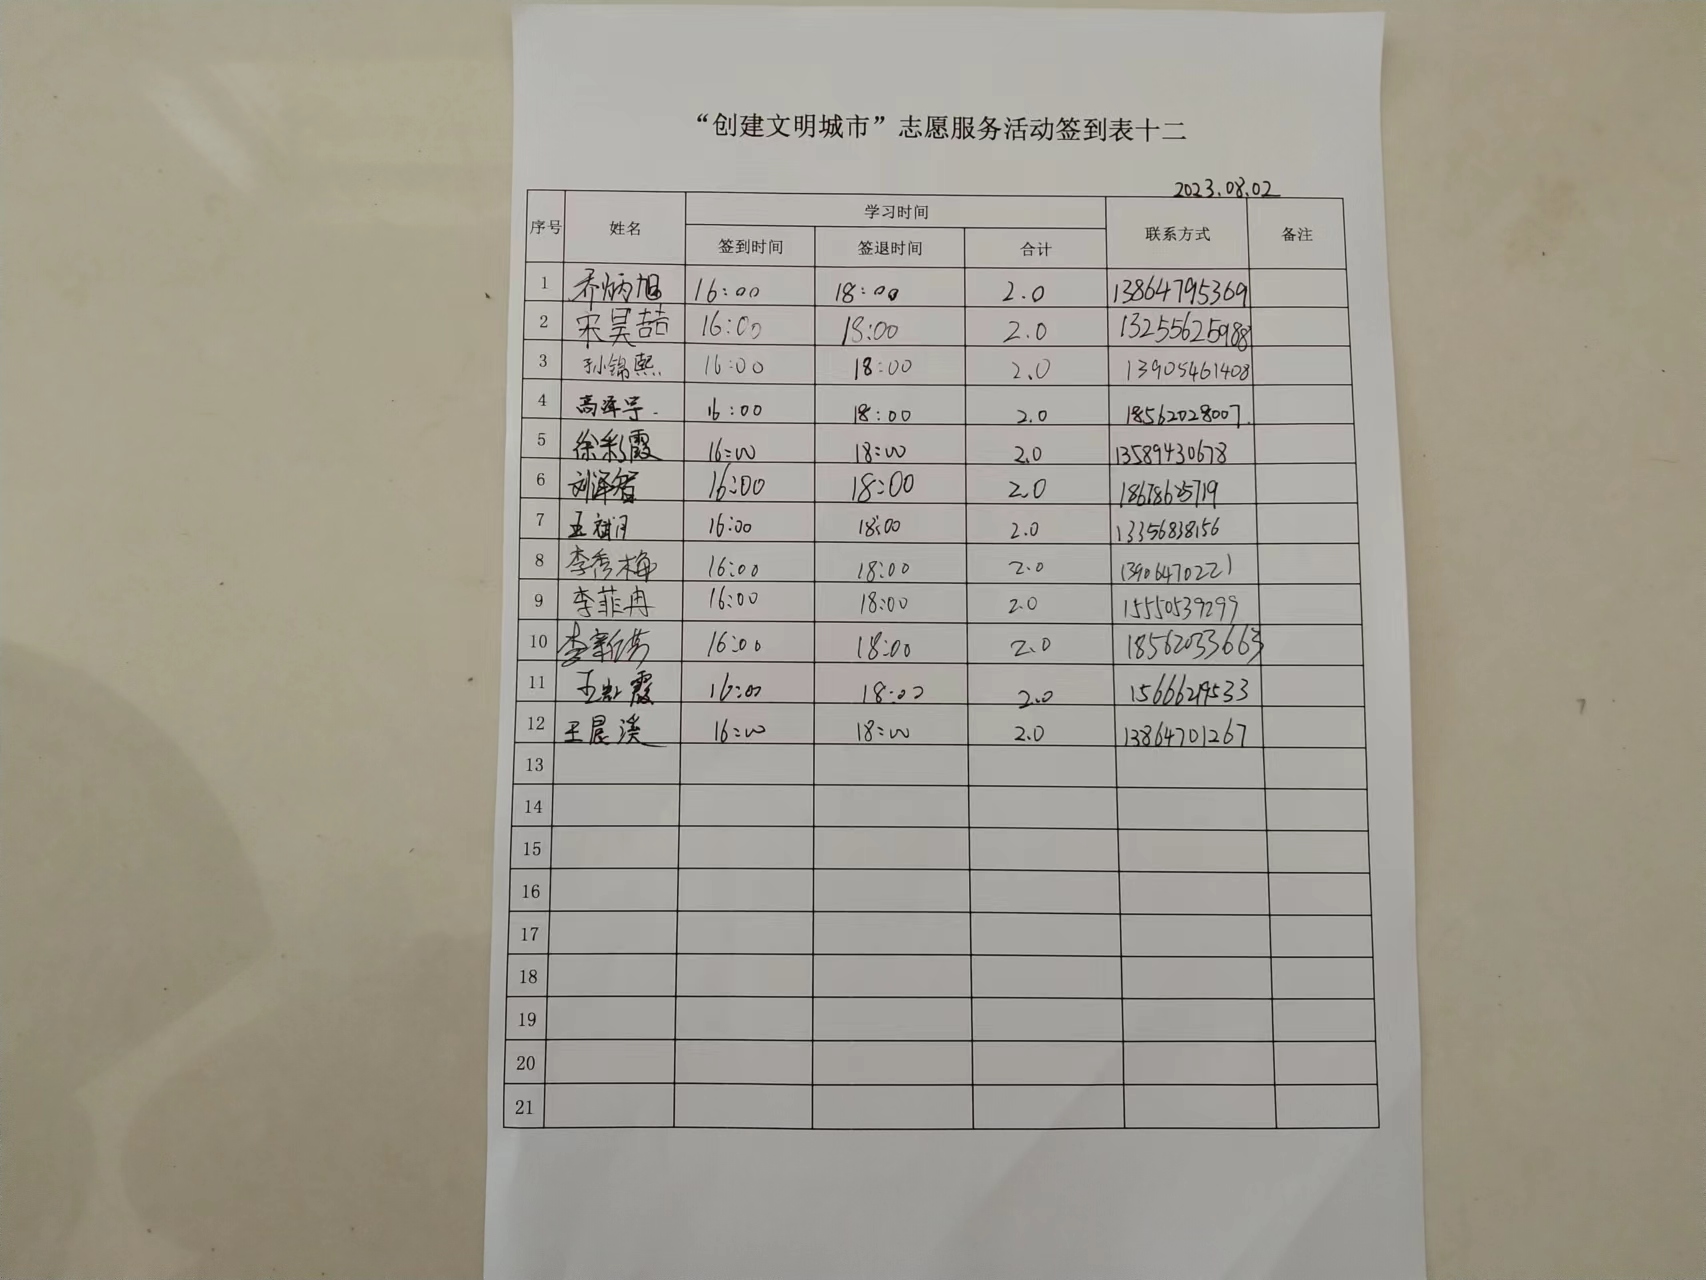 “创建文明城市”志愿服务活动签到表十二
2023.08.02
序号 姓名 学习时间 联系方式 备注
签到时间 签退时间 合计
1 乔炳旭 16:00 18:00 2.0 13864795369
2 宋昊喆 16:00 18:00 2.0 13255625988
3 孙锦熙 16:00 18:00 2.0 13905461408
4 高泽宇. 16:00 18:00 2.0 18562028007.
5 徐彩霞 16:00 18:00 2.0 13589430678
6 刘泽智 16:00 18:00 2.0 18678625719
7 16:00 18:00 2.0 13356838156
8 李秀梅 16:00 18:00 2.0 13906470221
9 李菲冉 16:00 18:00 2.0 15550539299
10 16:00 18:00 2.0 18562033663
11 王红霞 16:00 18:00 2.0
12 王晨溪 16:00 18:00 2.0 13864701267
13
14
15
16
17
18
19
20
21